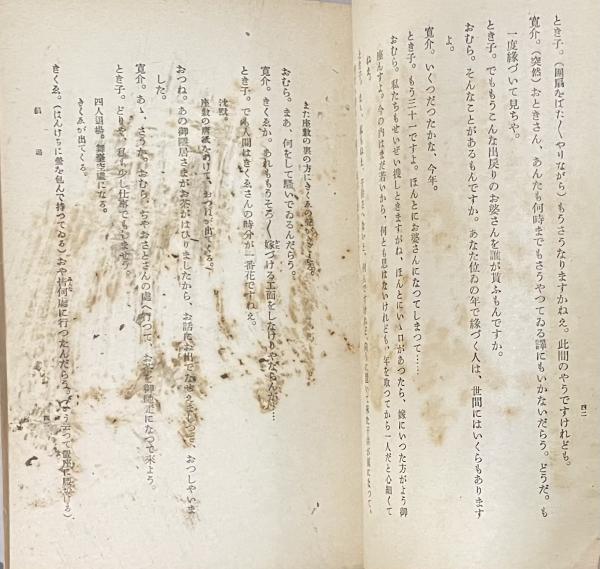 四二
とき子。(團扇をばた〳〵やりながら)もうさうなりますかねえ。此間のやうですけれども。
寬介。(突然)おときさん、あんたも何時までもさうやつてゐる譯にもいかないだらう。どうだ。も
一度緣づいて見ちや。
とき子。でももうこんな出戾りのお婆さんを誰が貰ふもんですか。
おむら。そんなことがあるもんですか。あなた位ゐの年で緣づく人は、世間にはいくらもあります
よ。
寬介。いくつだつたかな、今年。
とき子。もう三十一ですよ。ほんとにお婆さんになつてしまつて……
おむら。私たちもせいぜい搜しときますがね、ほんとにいゝ口があつたら、嫁にいつた方がよう御
座んすよ。今の內はまだ若いから、何とも思はないけれども、年を取つてから一人だと心細くて
ねえ。
また座敷の裏の方にきくゑの
おむら。まあ、何をして騷いでゐるんだらう。
寬介。きくゑか。あれももうそろ〳〵嫁づける工面をしなけりやならんが……
とき子。でも人間はきくゑさんの時分が一番花ですねえ。
沈默。
座敷の唐紙をあけて、おつねが出てくる。
おつね。あの御隱居さまがお茶がはひりましたから、お話にお出でなさいましつて、おつしやいま
した。
寬介。あゝ、さうか。おむら、ちやおさとさんの處へ行つて、お茶を御馳走になつて來よう。
とき子。どりや、私も少し仕事でもしませう。
四人退場。舞臺空虛になる。
きくゑが出てくる。
きくゑ。(はんけちに螢を包んで持つてゐる)おや皆何處に行つたんだらう。